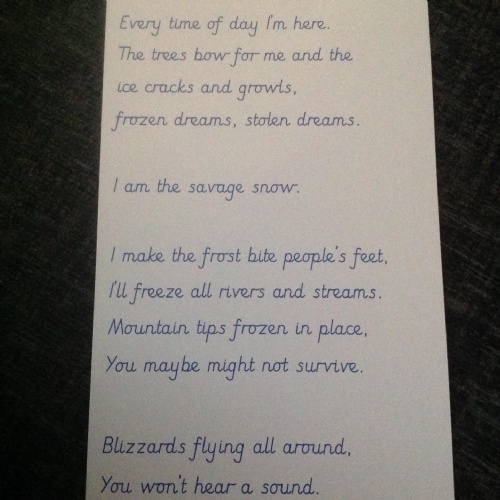 Every time of day I'm here.
The trees bow for me and the
ice cracks and growls,
frozen dreams, stolen dreams.
I am the savage snow.
I make the frost bite people's feet,
I'll freeze all rivers and streams.
Mountain tips frozen in place,
You maybe might not survive.
Blizzards flying all around,
You won't hear a sound.